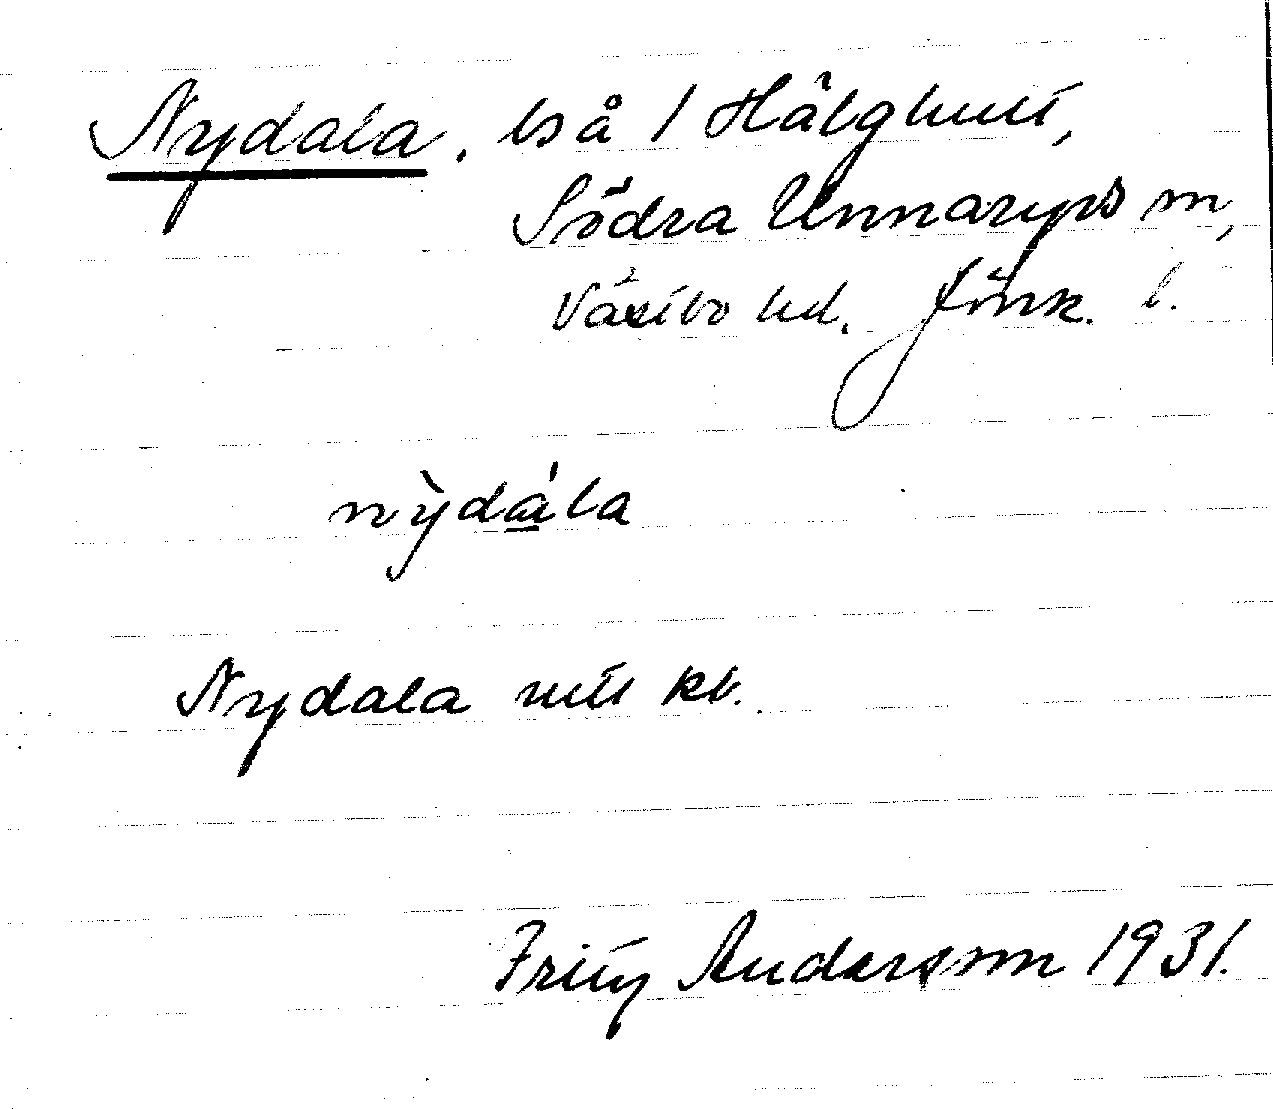 Nydala, bs å 1 Hälghult,
Södra Unnaryps sn,
Västbo hd. Jönk. l.
nỳdála
Nydala utt kb.
Fritz Andersson 1931.